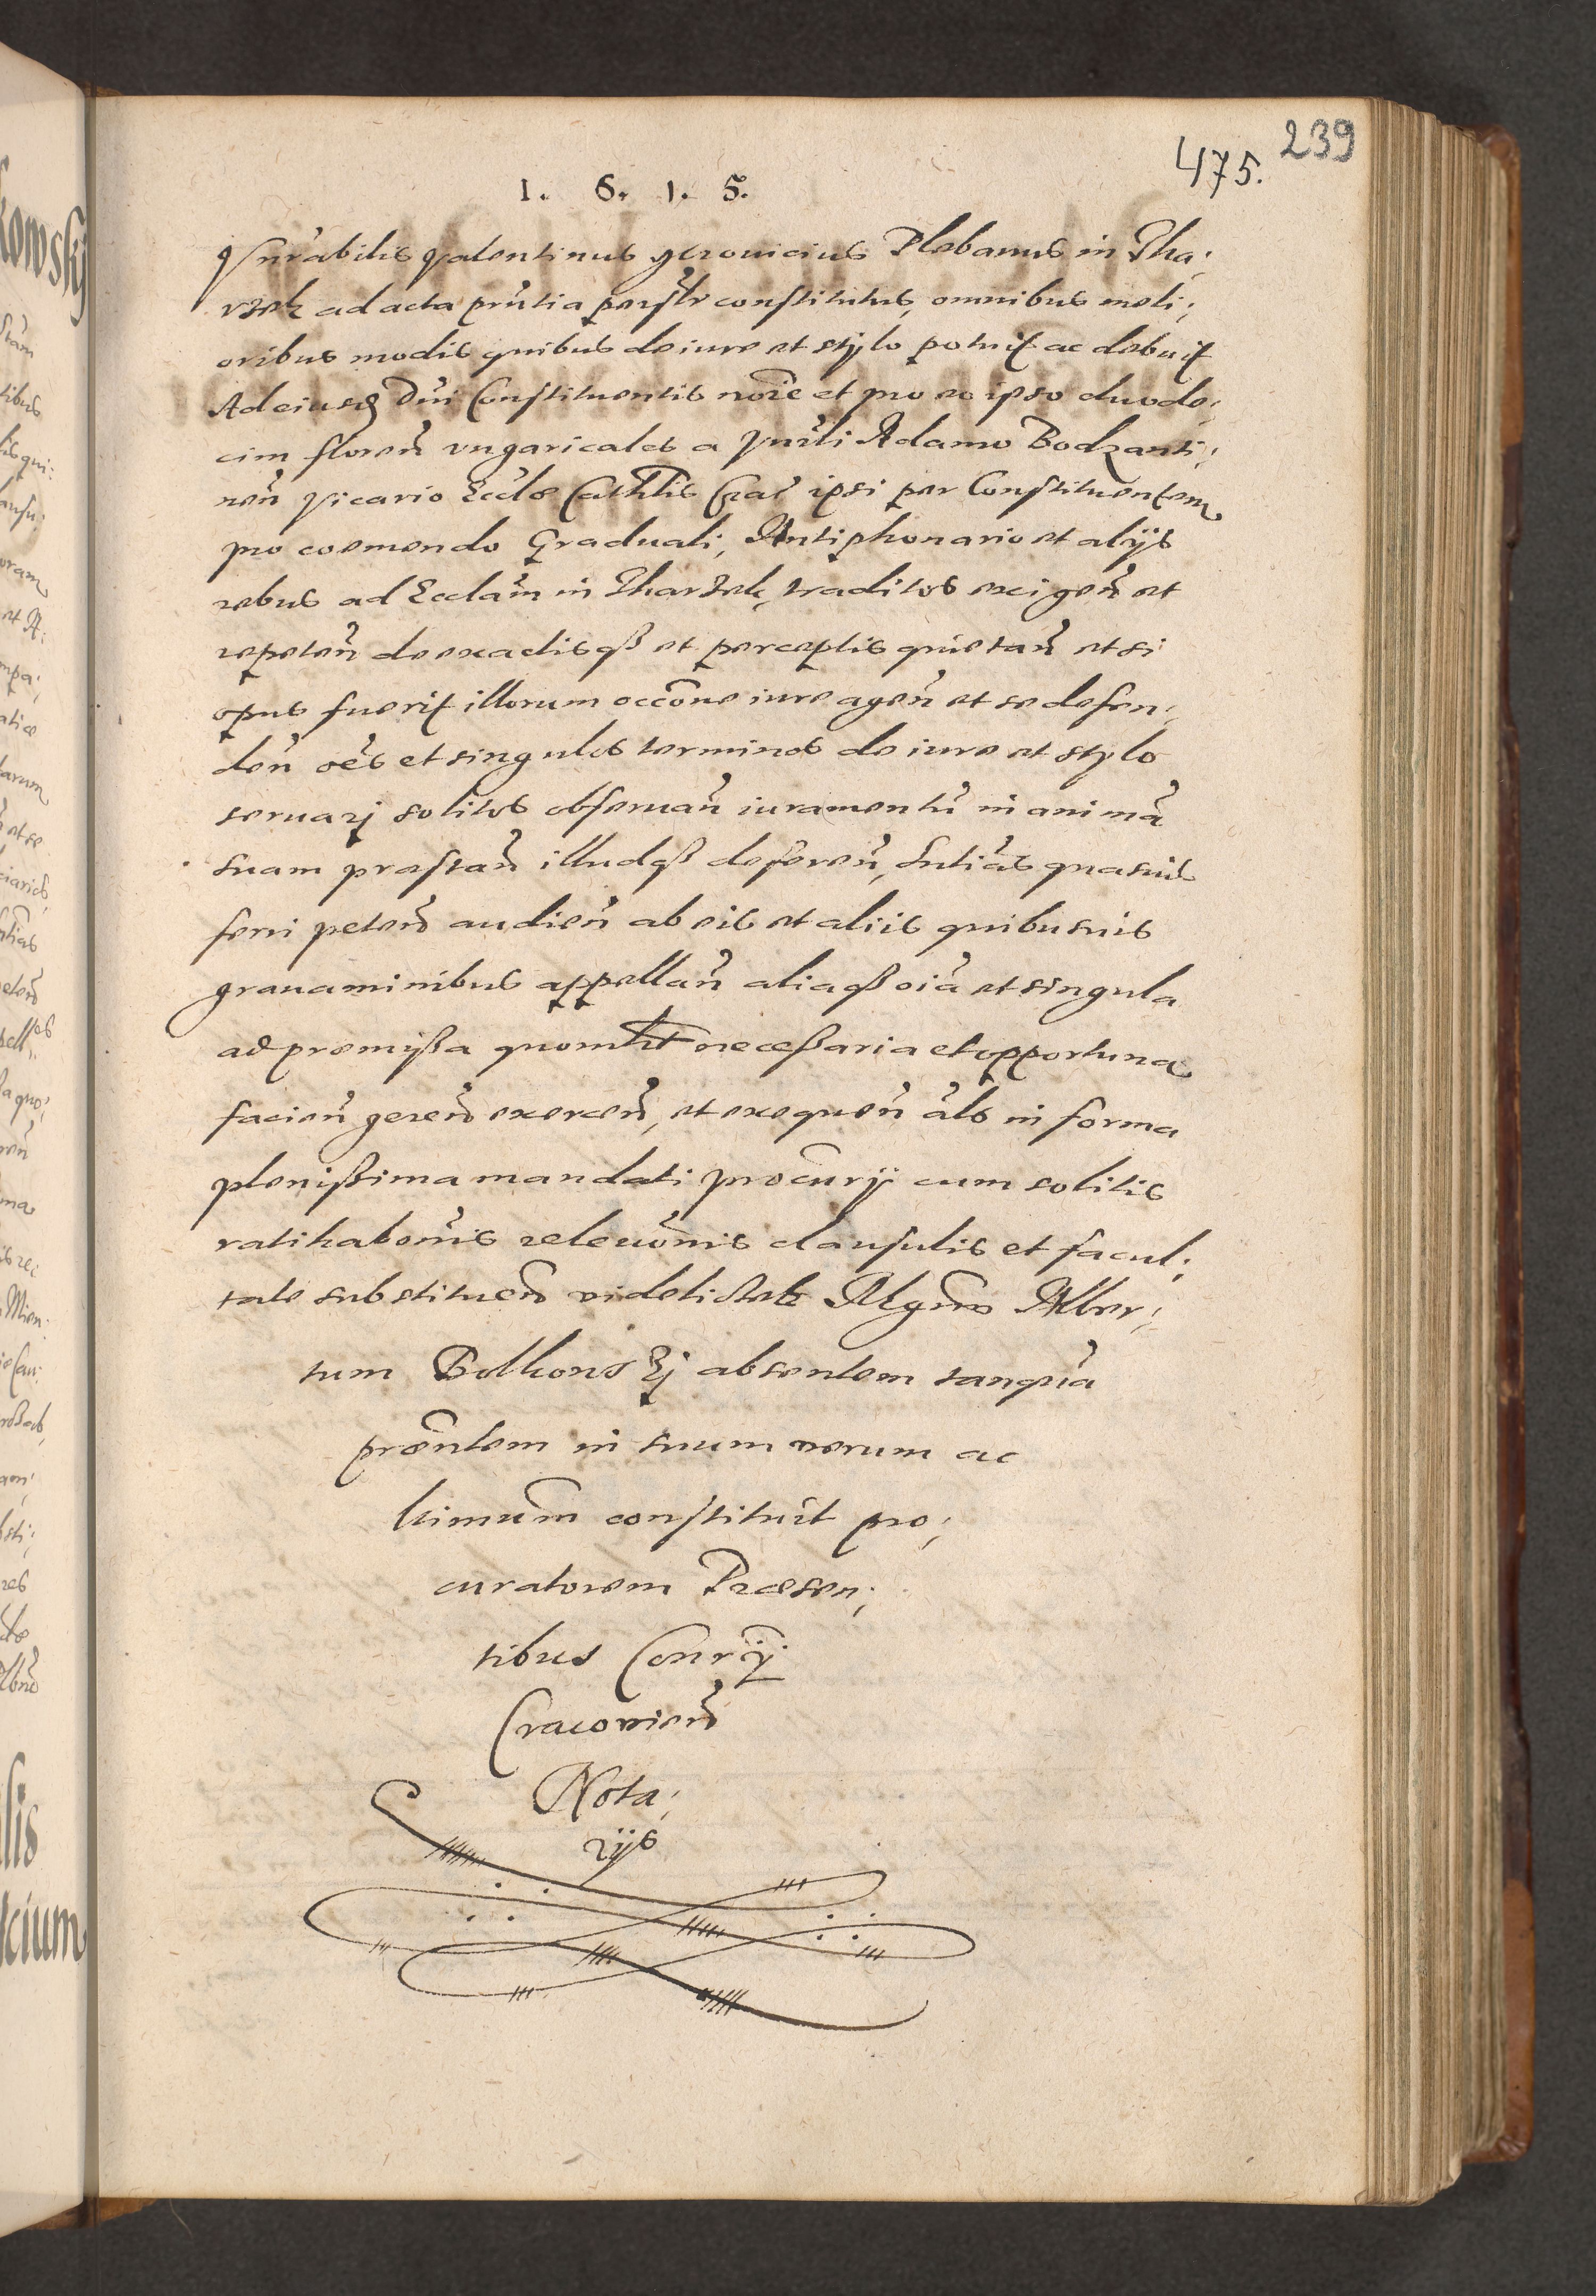 239
475.
1. 6. 1. 5.
Vnrabilis Valentinus Plebanus in Tha;
rzek ad acta pñtia psłr constitutus, omnibus meli;
oribus modis quibus de iure et stylo potuit ac debuit
Ad eiusdẽ Dñi Constituentis noĩe et pro eo ipso duode;
cim floreñ vngaricales a Vnrłi Adamo Bodzanti;
neñ Vicario Eccłae Cathłis Crac ipsi per Constituentem
pro coemendo Graduali, Antiphonario et alijs
rebus ad Eccłam in Tharzek, traditos exigeñ et
repeteñ de exactisqß et perceptis quietañ et si
opus fuerit illorum occõne iure ageñ et se defen;
deñ oẽs et singulos terminos de iure et stylo
seruarj solitos obseruañ iuramentũ in animã
suam præstañ illudqß defereñ, sñtias quasuis
ferri peteñ audieñ ab eis et aliis quibusuis
grauaminibus appellañ aliaqß oĩa et singula
ad præmißa quomłt neceßaria et opportuna
facieñ gereñ exerceñ, et exequeñ ałs in forma
plenißima mandati procurij cum solitis
ratihabõnis releuõnis clausulis et facul;
tate substitueñ videlicet Mgrum Alber;
tum absentem tanquã
præntem in suum verum ac
ltimum constituit pro;
curatorem Præsen;
tibus Conrij
Cracovieñ
Nota;
rijs
kowskÿ
lis
cium